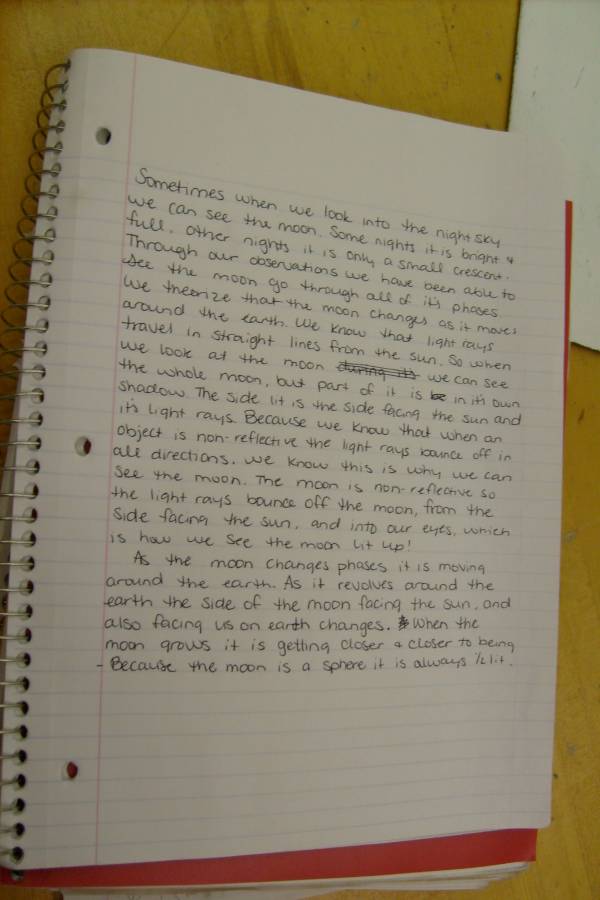 Sometimes when we look into the night sky
we can see the moon. Some nights it is bright &
full, other nights it is only a small crescent.
Through our observations we have been able to
see the moon go through all of it's phases.
We theorize that the moon changes as it moves
around the earth. We know that light rays
travel in straight lines from the sun. So when
we look at the moon during it's we can see
the whole moon, but part of it is in it's own
shadow. The side lit is the side facing the sun and
it's light rays. Because we know that when an
object is non-reflective the light rays bounce off in
all directions. We know this is why we can
see the moon. The moon is non-reflective so
the light rays bounce off the moon, from the
side facing the sun, and into our eyes, which
is how we see the moon lit up!
As the moon changes phases it is moving
around the earth. As it revolves around the
earth the side of the moon facing the sun, and
also facing us on earth changes. When the
moon grows it is getting closer & closer to being
- Because the moon is a sphere it is always 1/2 lit.